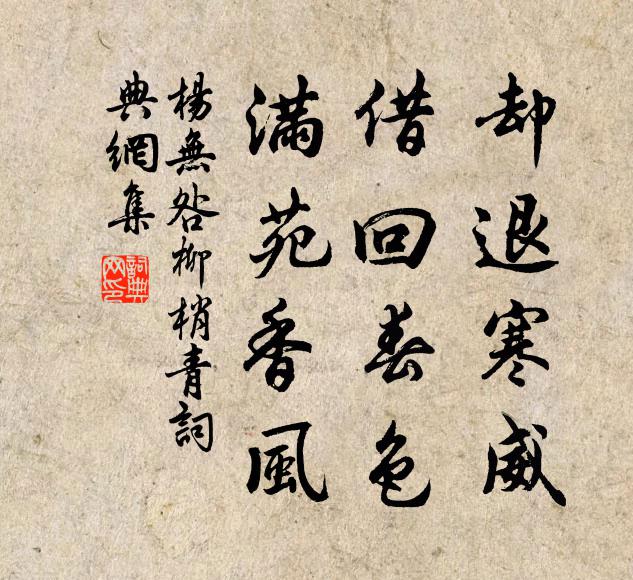 却退寒威
借回春色
滿苑香風
楊無咎柳梢青詞
典網集
詞典網印